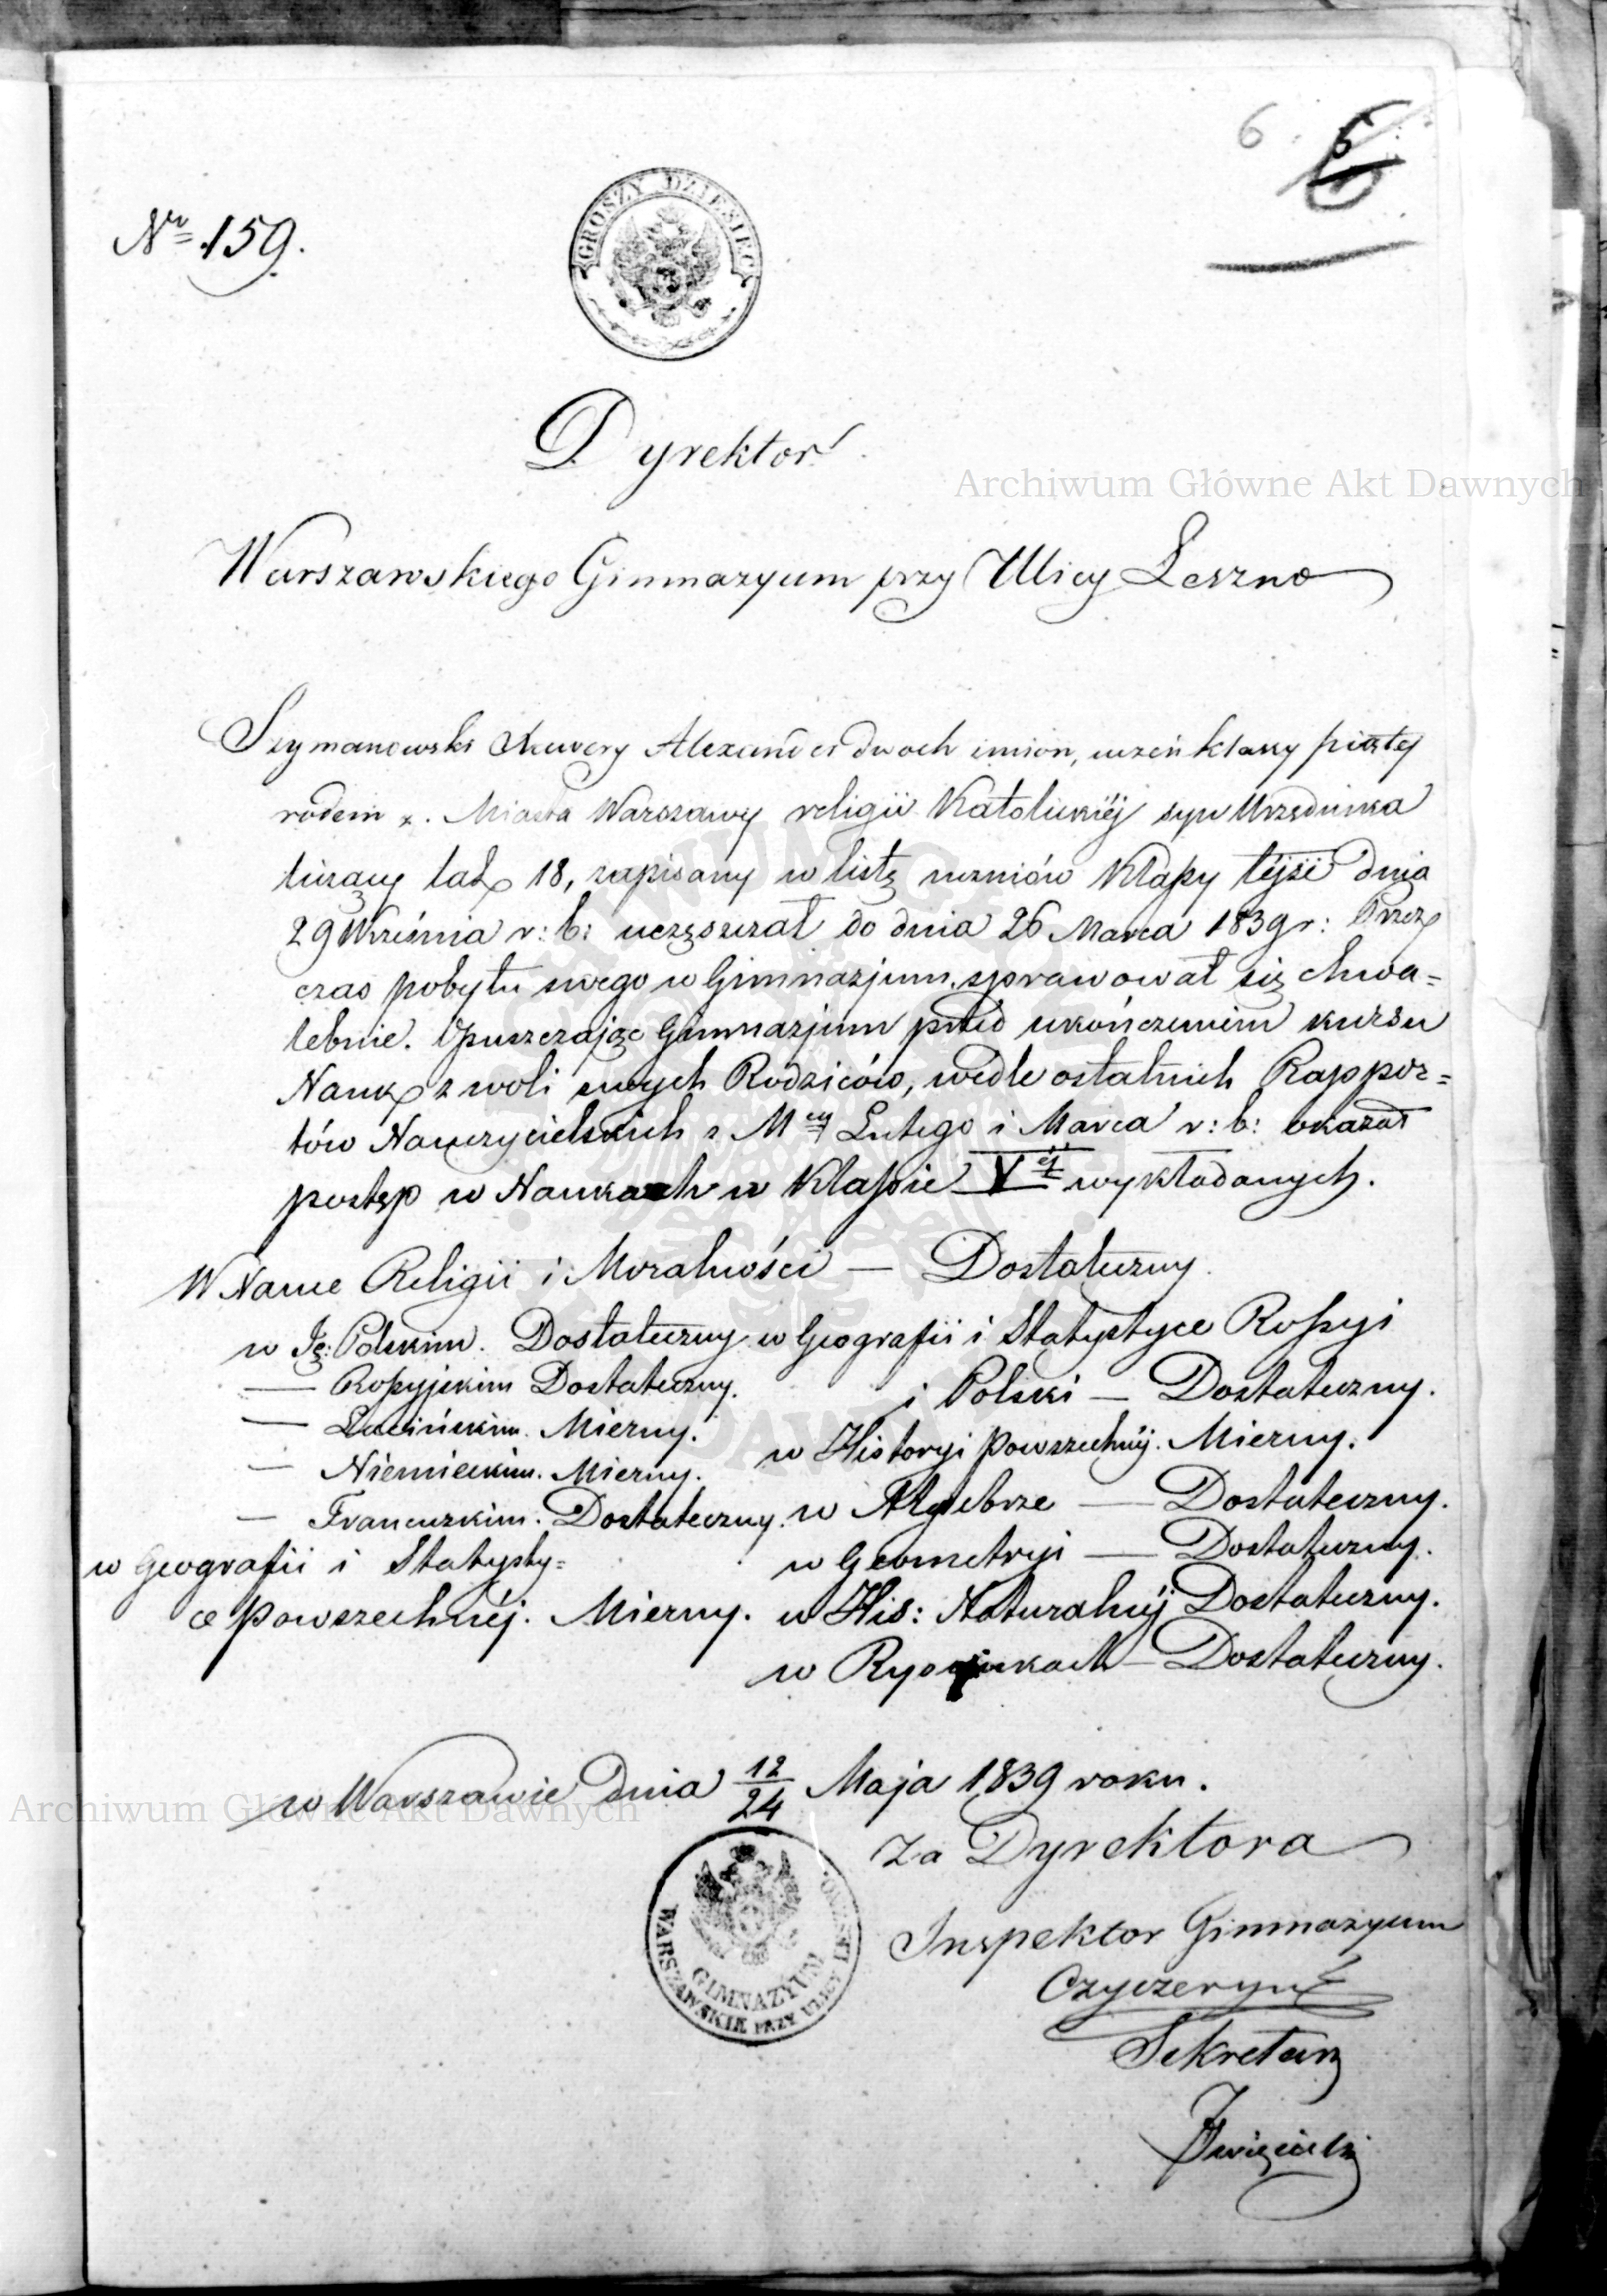 6. 6
Nr 159.
GROSZY DZIESIĘĆ
Dyrektor
Archiwum Główne Akt Dawnych
Warszawskiego Gimnazyum przy Ulicy Leszno
Szymanowski Xawery Alexander dwoch imion, uczeń klassy piątej
rodem z Miasta Warszawy religii Katolickiéj syn Urzędnika
liczący lat 18, zapisany w listę uczniów Klassy téjże dnia
29 Września r: b: uczęszczał do dnia 26 Marca 1839 r: Przez
czas pobytu swego w Gimnazjum sprawował się chwa=
lebnie. Opuszczając Gimnazjum przed ukończeniem kursu
Nauk z woli swych Rodziców, wedle ostatnich Rappor=
tów Nauczycielskich z Mcy Lutego i Marca r: b: okazał
postęp w Naukach w Klassie Véj wykładanych.
W Nauce Religii i Moralności — Dostateczny.
w Ję: Polskim. Dostateczny
— Rossyjskim Dostateczny.
— Łacińskim. Mierny.
— Niemieckim. Mierny.
— Francuzkim. Dostateczny.
w Geografii i Statysty=
ce powszechnéj. Mierny.
w Geografii i Statystyce Rossyi
i Polski — Dostateczny.
w Historyi Powszechnéj. Mierny.
w Algebrze — Dostateczny.
w Geometryi — Dostateczny.
w His: Naturalnéj Dostateczny.
w Rysunkach — Dostateczny.
w Warszawie dnia 12/24 Maja 1839 roku.
Archiwum Główne Akt Dawnych
Za Dyrektora
Inspektor Gimnazyum
Czyczeryn
Sekretarz
GIMNAZYUM
WARSZAWSKIE PRZY ULICY LESZNO